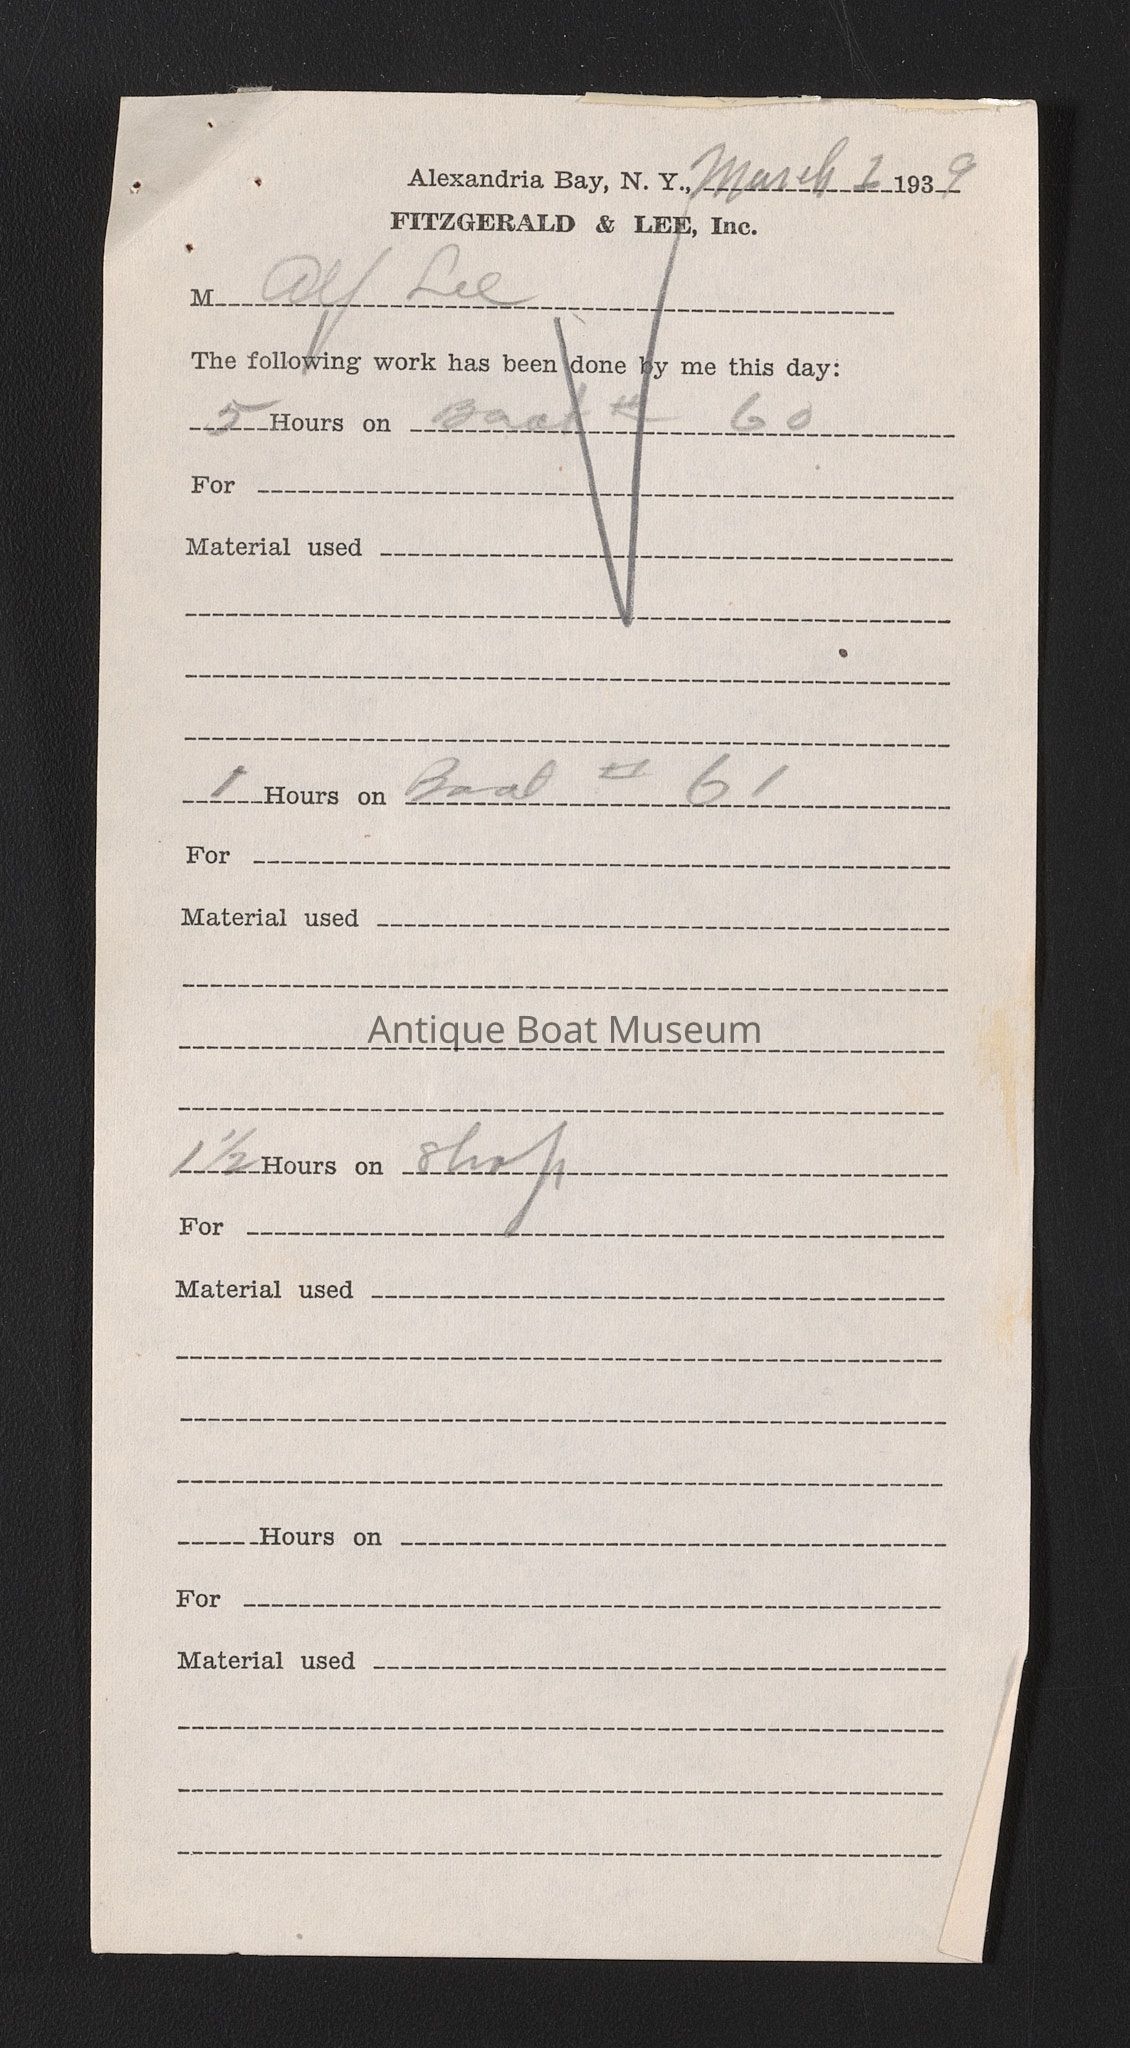 Alexandria Bay, N. Y., March 1 1939
FITZGERALD & LEE, Inc.
M Alf Lee
The following work has been done by me this day:
5 Hours on Boat # 60
For
Material used
1 Hours on Boat # 61
For
Material used
Antique Boat Museum
1 1/2 Hours on Shop
For
Material used
Hours on
For
Material used